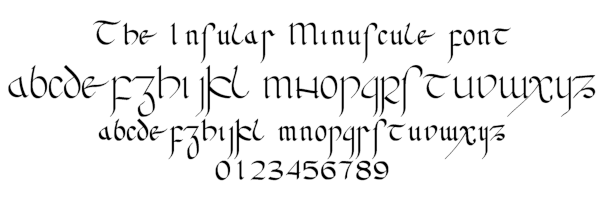 The Insular Minuscule font
abcdefghijkl mnopqrstuvwxyz
abcdefghijkl mnopqrstuvwxyz
0123456789